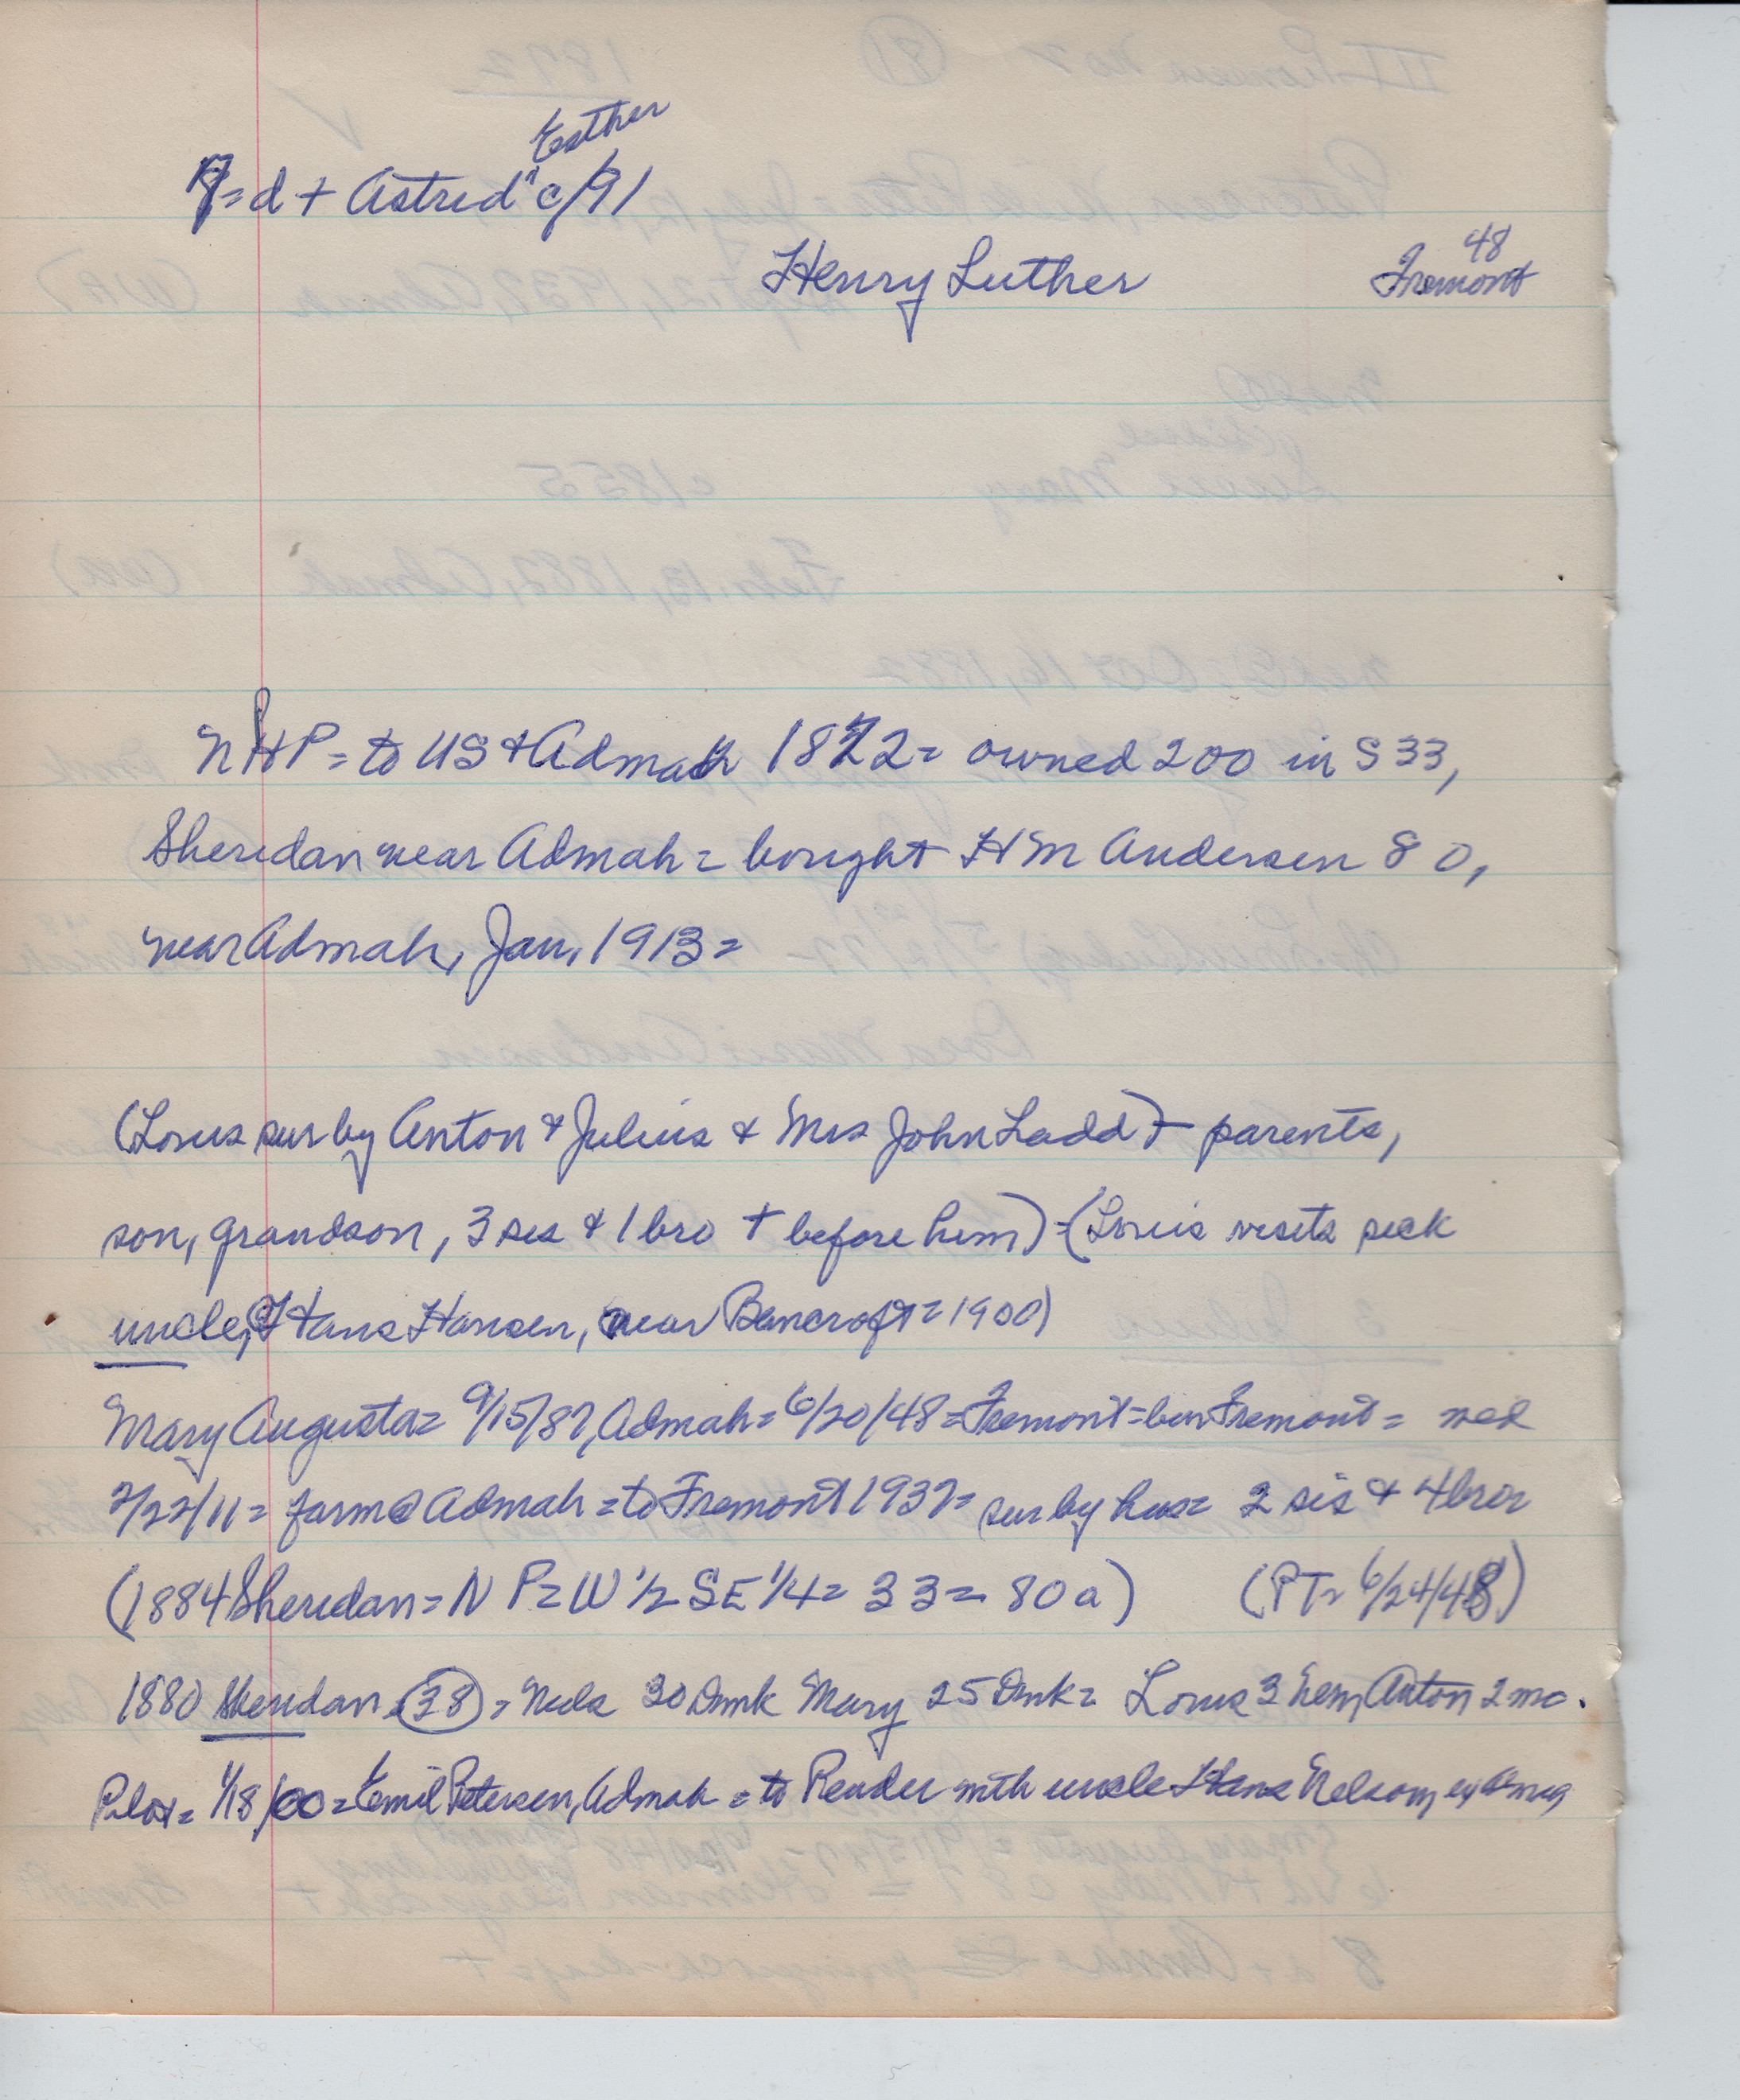 Esther
= d + Astrid ^ c/91
48
Henry Luther Fremont
NHP = to US & Admah 1872 = owned 200 in S 33,
Sheridan near Admah = bought HM Andersen 80,
near Admah, Jan, 1913 =
(Louis sur by Anton & Julius & Mrs John Ladd) + parents,
son, grandson, 3 sis & 1 bro + before him) - (Louis visits sick
uncle, Hans Hansen, near Bancroft = 1900)
Mary Augusta = 9/15/87, Admah = 6/20/48 = Fremont = bur Fremont =
2/22/11 = farm @ Admah = to Fremont 1937 = sur by hus = 2 sis & 4 bros
(1884 Sheridan = N P = W 1/2 SE 1/4 = 33 = 80 a) (PT = 6/24/48)
1880 Sheridan (38) = Nels 30 Dmk Mary 25 Dmk = Louis 3 Anton 2 mo.
Pilot = 1/18/00 = Emil Petersen, Admah = to Render with uncle Hans Nelson,